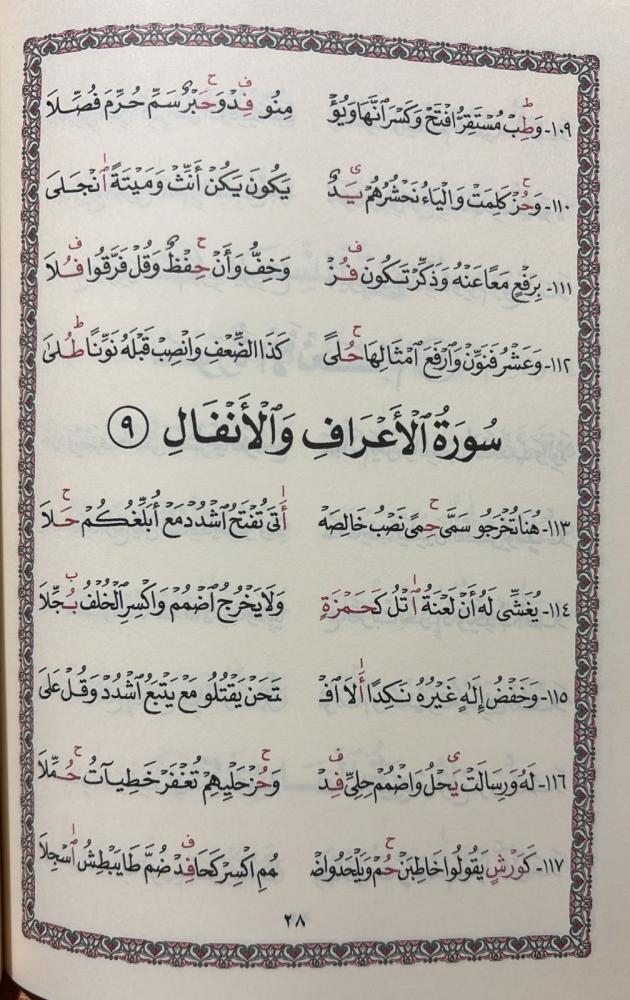 ١٠٩- وَطِبْ مُسْتَقِرٌّ افْتَحْ وَكَسْرَ انَّهَا وَيُؤْ مِنُو فِدْ وَحَبْرٌ سَمِّ حُرِّمَ فُصِّلَا
١١٠- وَحُزْ كَلِمَتْ وَالْيَاءُ نَحْشُرُهُمْ يَدٌ يَكُونَ يَكُنْ أَنِّثْ وَمَيْتَةٌ اٰنْجَلَى
١١١- بِرَفْعٍ مَعًا عَنْهُ وَذَكِّرْ تَكُونَ فُزْ وَخِفُّ وَأَنْ حِفْظٌ وَقُلْ فَرَّقُوا فُلَا
١١٢- وَعَشْرُ فَنَوِّنْ وَارْفَعَ امْثَالِهَا حُلًى كَذَا الضِّعْفِ وَانْصِبْ قَبْلَهُ نَوِّنًا طُلَى
سُورَةُ الْأَعْرَافِ وَالْأَنْفَالِ ٩
١١٣- هُنَا تُخْرَجُو سَمَّى حِمًى نَصْبُ خَالِصَهْ أَتَى تُفْتَحُ اشْدُدْ مَعْ أُبَلِّغُكُمْ حَلَا
١١٤- يُغَشِّي لَهُ أَنْ لَعْنَةُ اٰتْلُ كَحَمْزَةٍ وَلَا يَخْرُجُ اضْمُمْ وَاكْسِرِ الْخُلْفُ بُجِّلَا
١١٥- وَخَفْضُ إِلٰهٍ غَيْرُهُ نَكِدًا أَلَا افْـ ـتَحَنْ يَقْتُلُو مَعْ يَتْبَعُ اشْدُدْ وَقُلْ عَلَى
١١٦- لَهُ وَرِسَالَتْ يَحْلُ وَاضْمُمْ حِلِيِّ فِدْ وَحُزْ حَلْيِهِمْ تُغْفَرْ خَطِيـآتُ حُمِّلَا
١١٧- كَوَرْشٍ يَقُولُوا خَاطِبَنْ حُمْ وَيَلْحَدُو اضْـ ـمُمِ اكْسِرْ كَحَا فِدْ ضُمَّ طَا يَبْطِشُ اسْجِلَا
٢٨